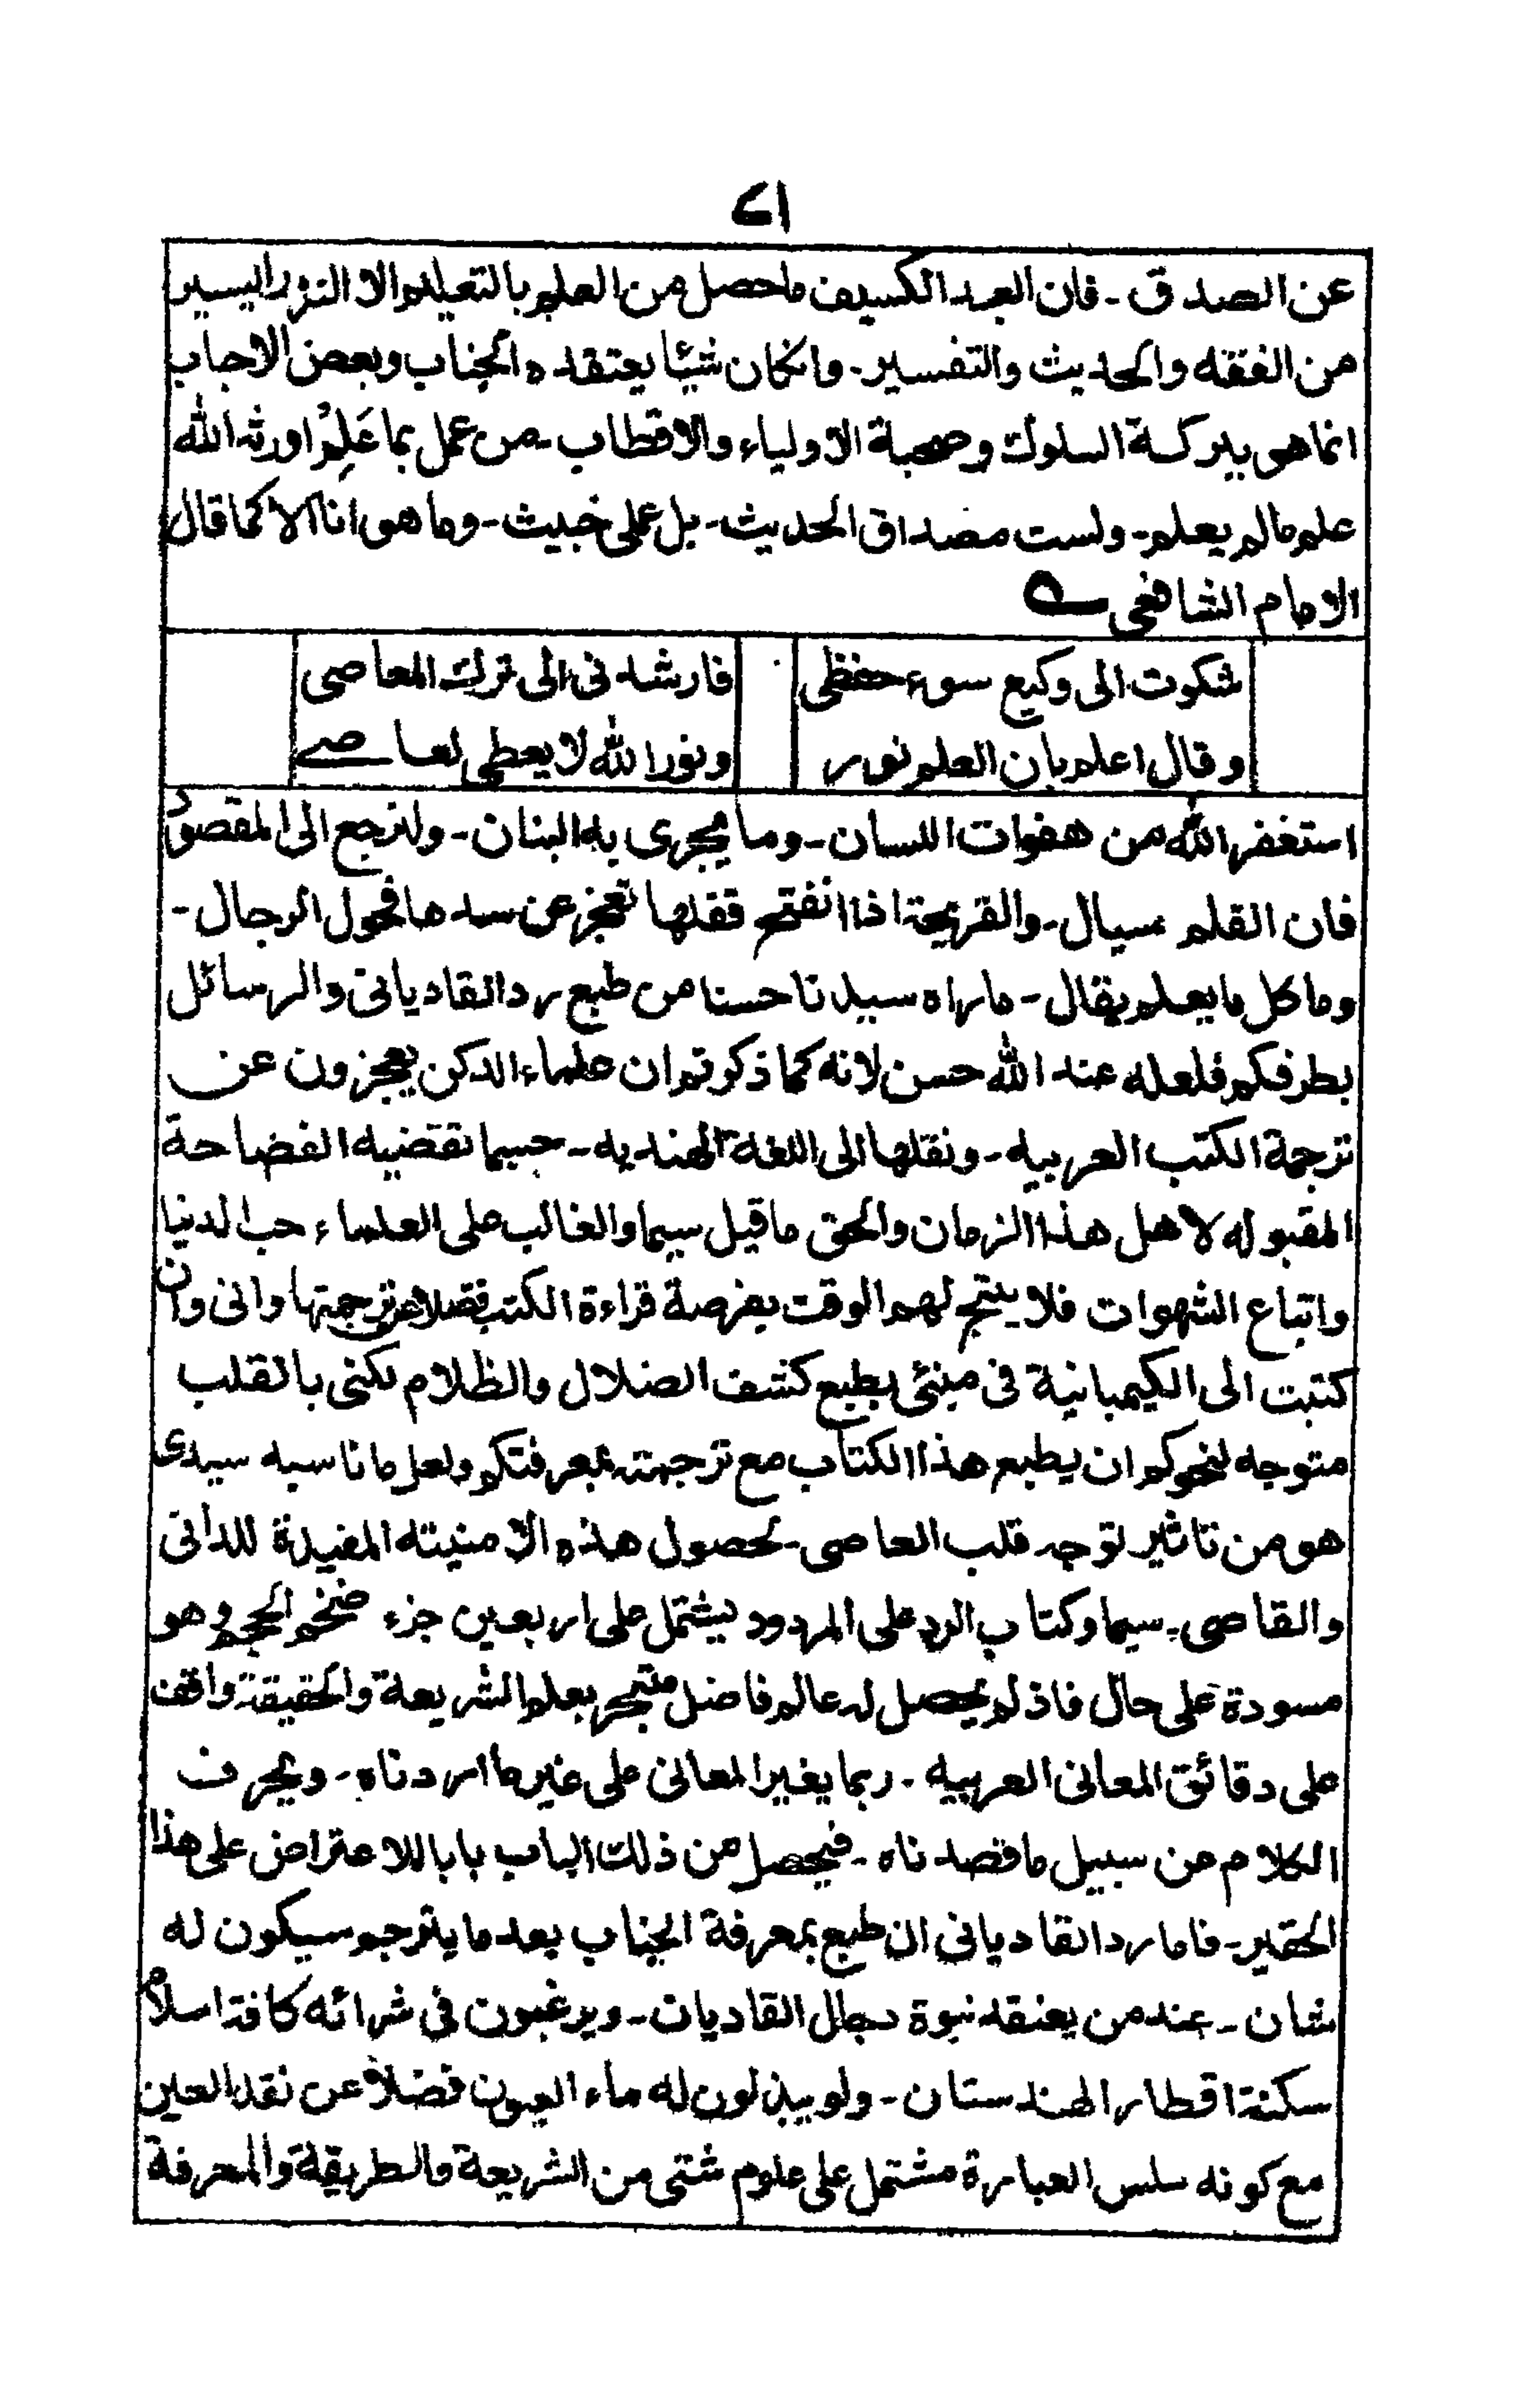 ٢١
عن الصدق۔ فان العبد الكسيف ماحصل من العلم بالتعليم الا النزر اليسير
من الفقه والحديث والتفسير۔ وانكان شيئا يعتقده الجناب وبعض الاحباب
انما هى ببركة السلوك وصحبة الاولياء والاقطاب۔ من عمل بما عَلِمْ اورثه الله
علم مالم يعلم۔ ولست مصداق الحديث۔ بل عملى خبيث۔ وما هو انا الا كما قال
الامام الشافعى ؎
شكوت الى وكيع سوء حفظى فارشدنى الى ترك المعاصى
وقال اعلم بان العلم نور ونور الله لا يعطى لعاصے
استغفر الله من هفوات اللسان۔ وما يجرى به البنان۔ ولنرجع الى المقصود
فان القلم سيال۔ والقريحة اذا انفتح قفلها تعجز عن سدها فحول الرجال۔
وما كل ما يعلم يقال۔ ماراه سيدنا حسنا من طبع رد القاديانى والرسائل
بطرفكم فلعله عند الله حسن لانه كما ذكرتم ان علماء الدكن يعجزون عن
ترجمة الكتب العربيه۔ ونقلها الى اللغة الهنديه۔ حسبما تقتضيه الفصاحة
المقبوله لاهل هذا الزمان والحق ماقيل سيما والغالب على العلماء حب الدنيا
واتباع الشهوات فلا ينتج لهم الوقت بفرصة قراءة الكتب فضلا عن ترجمتها وانى وان
كتبت الى الكيمبانية فى مبنئى بطبع كشف الضلال والظلام لكنى بالقلب
متوجه لنحوكم ان يطبع هذا الكتاب مع ترجمته بمعرفتكم ولعل ما ناسبه سيدى
هو من تاثير توجه قلب العاصى۔ لحصول هذه الامنيته المفيدة للدانى
والقاصى۔ سيما وكتاب الرد على المردود يشتمل على اربعين جزء ضخم الحجم وهو
مسودة على حال فاذ لم يحصل له عالم فاضل متبحر بعلم الشريعة والحقيقة واقف
على دقائق المعانى العربيه۔ ربما يغير المعانى على غير ما اردناه۔ ويحرف
الكلام عن سبيل ما قصدناه۔ فيحصل من ذلك الباب بابا للاعتراض على هذا
الحقير۔ فاما رد القاديانى ان طبع بمعرفة الجناب بعد ما يترجم سيكون له
شان۔ عند من يعتقد نبوة دجال القاديان۔ ويرغبون فى شرائه كافة اسلام
سكنة اقطار الهندستان۔ ولو يبذلون له ماء العيون فضلاً عن نقد العين
مع كونه سلس العبارة مشتمل على علوم شتى من الشريعة والطريقة والمعرفة